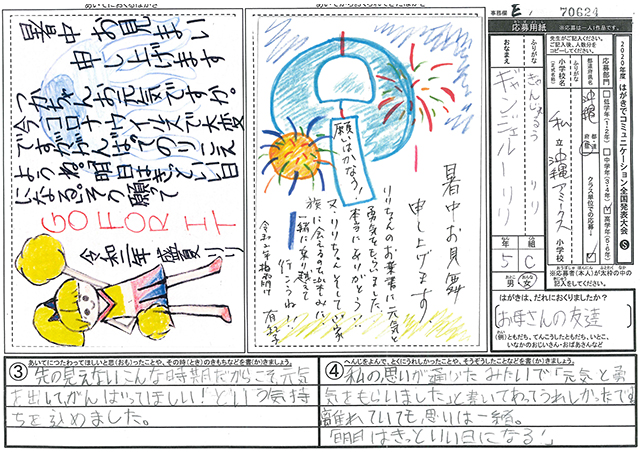 事務欄 E 70624
応募用紙
※応募は一人1作品です。
2020年度 はがきでコミュニケーション全国発表大会
先生がご記入ください。
ご記入後、人数分を
コピーしてください。
応募部門
低学年(1・2年)
中学年(3・4年)
高学年(5・6年)
都道府県名
沖縄
小学校名
(正式名称)
私立沖縄アミークス
小学校
クラス単位での応募
ふりがな
おなまえ
ギャンジェル リリ
5年
C組
男 女
※応募者(本人)が太枠の中の
記入をしてください。
はがきは、だれにおくりましたか?
お母さんの友達
(例)ともだち、てんこうしたともだち、いとこ、
いなかのおじいさん・おばあさんなど
暑中お見まい
申し上げます
つかちゃんお元気ですか。
今コロナウイルスで大変
ですががんばってのりこえ
ようね。明日はきっといい日
になる。そう願って
GO FOR IT
令和二年盛夏 リリ
願いはかなう!
暑中お見舞
申し上げます。
リリちゃんのお葉書に元気と
勇気をもらいました。
本当にありがとう!
又、リリちゃんそして、
族に会えるのを楽しみに
一緒に乗り越えて
行こうね!!
③ あいてにつたわってほしいと思(おも)ったことや、その時(とき)のきもちなどを書(か)きましょう。
先の見えないこんな時期だからこそ元気
を出してがんばってほしい!という気持
ちを込めました。
④ へんじをよんで、とくにうれしかったことや、そうぞうしたことなどを書(か)きましょう。
私の思いが通じたみたいで「元気と勇
気をもらいました」と書いてあってうれしかったです
離れていても思いは一緒。
「明日はきっといい日になる」